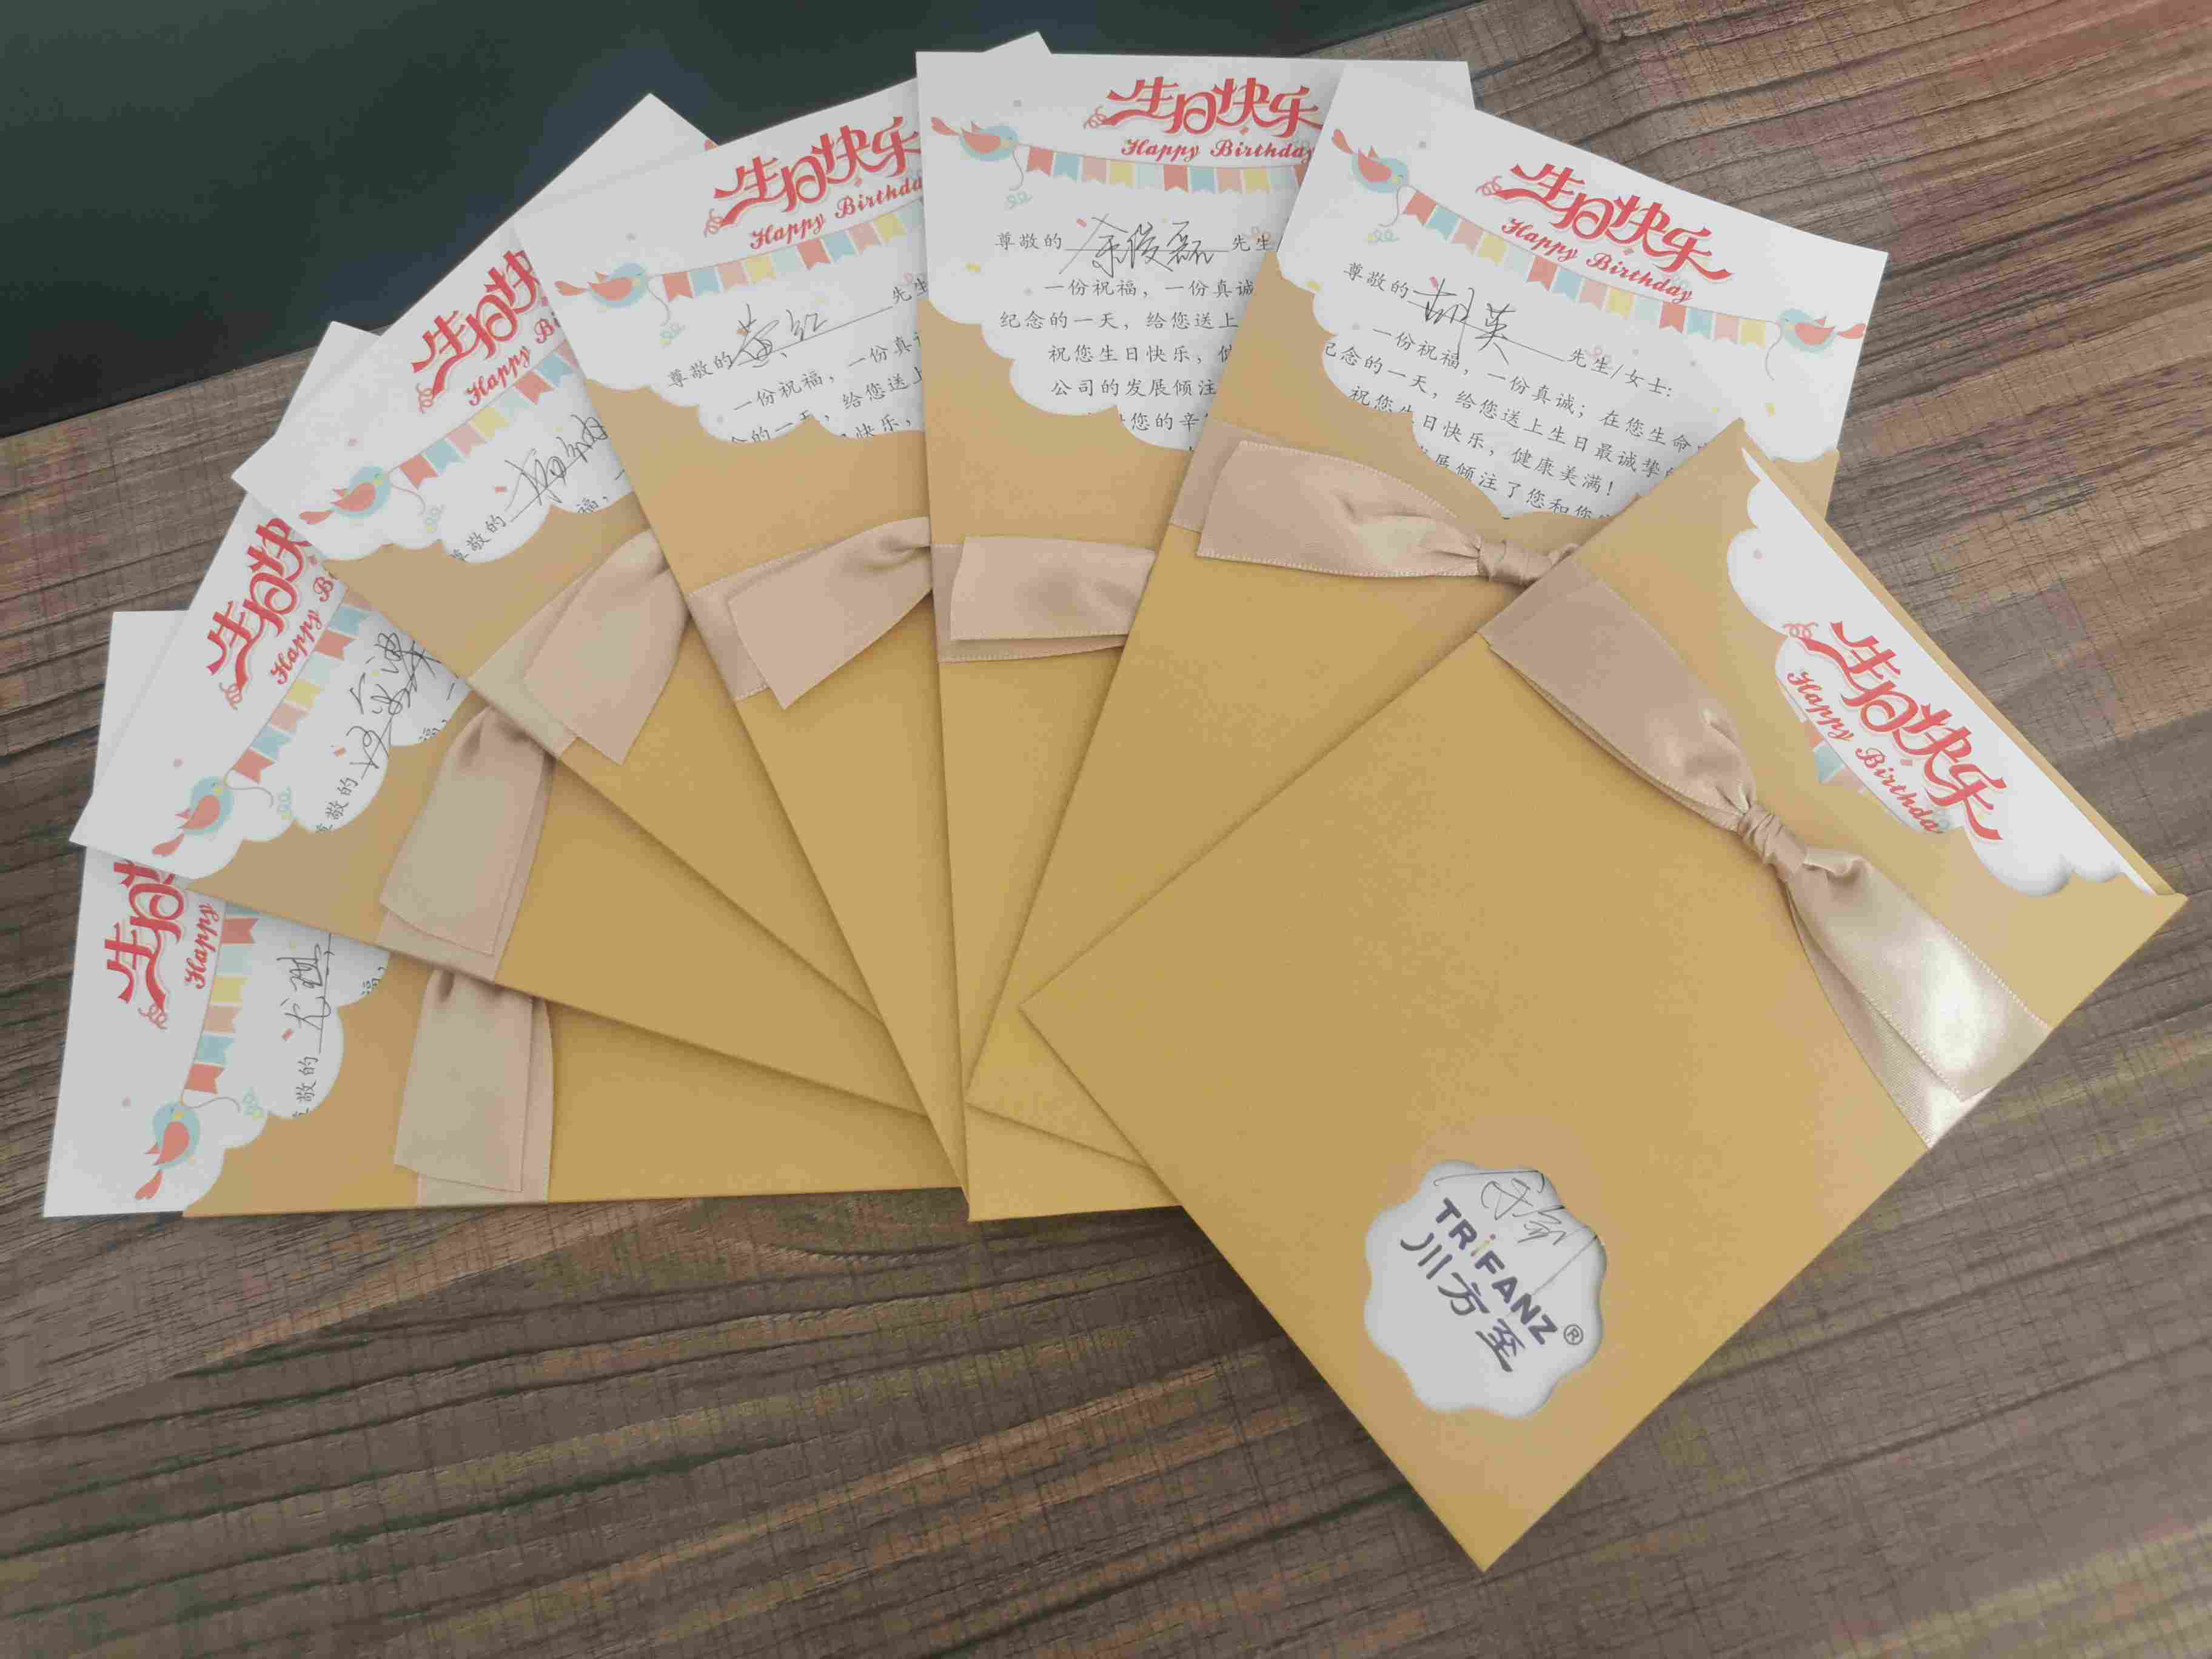 生日快
Happy
尊敬的尤琪
福，
生日快
Happy B
尊敬的
福，一
生日快
Happy Bi
尊敬的杨
福，一
生日快乐
Happy Birthda
尊敬的黄红先生
一份祝福，一份真诚
念的一天，给您送上
快乐，
生日快乐
Happy Birthday
尊敬的余俊磊先生
一份祝福，一份真诚
纪念的一天，给您送上
祝您生日快乐，健
公司的发展倾注
您的辛
生日快乐
Happy Birthday
尊敬的胡英先生/女士：
一份祝福，一份真诚；在您生命
纪念的一天，给您送上生日最诚挚的
祝您生日快乐，健康美满！
发展倾注了您和您
生日快乐
Happy Birthda
TRiFANZ®
川方至